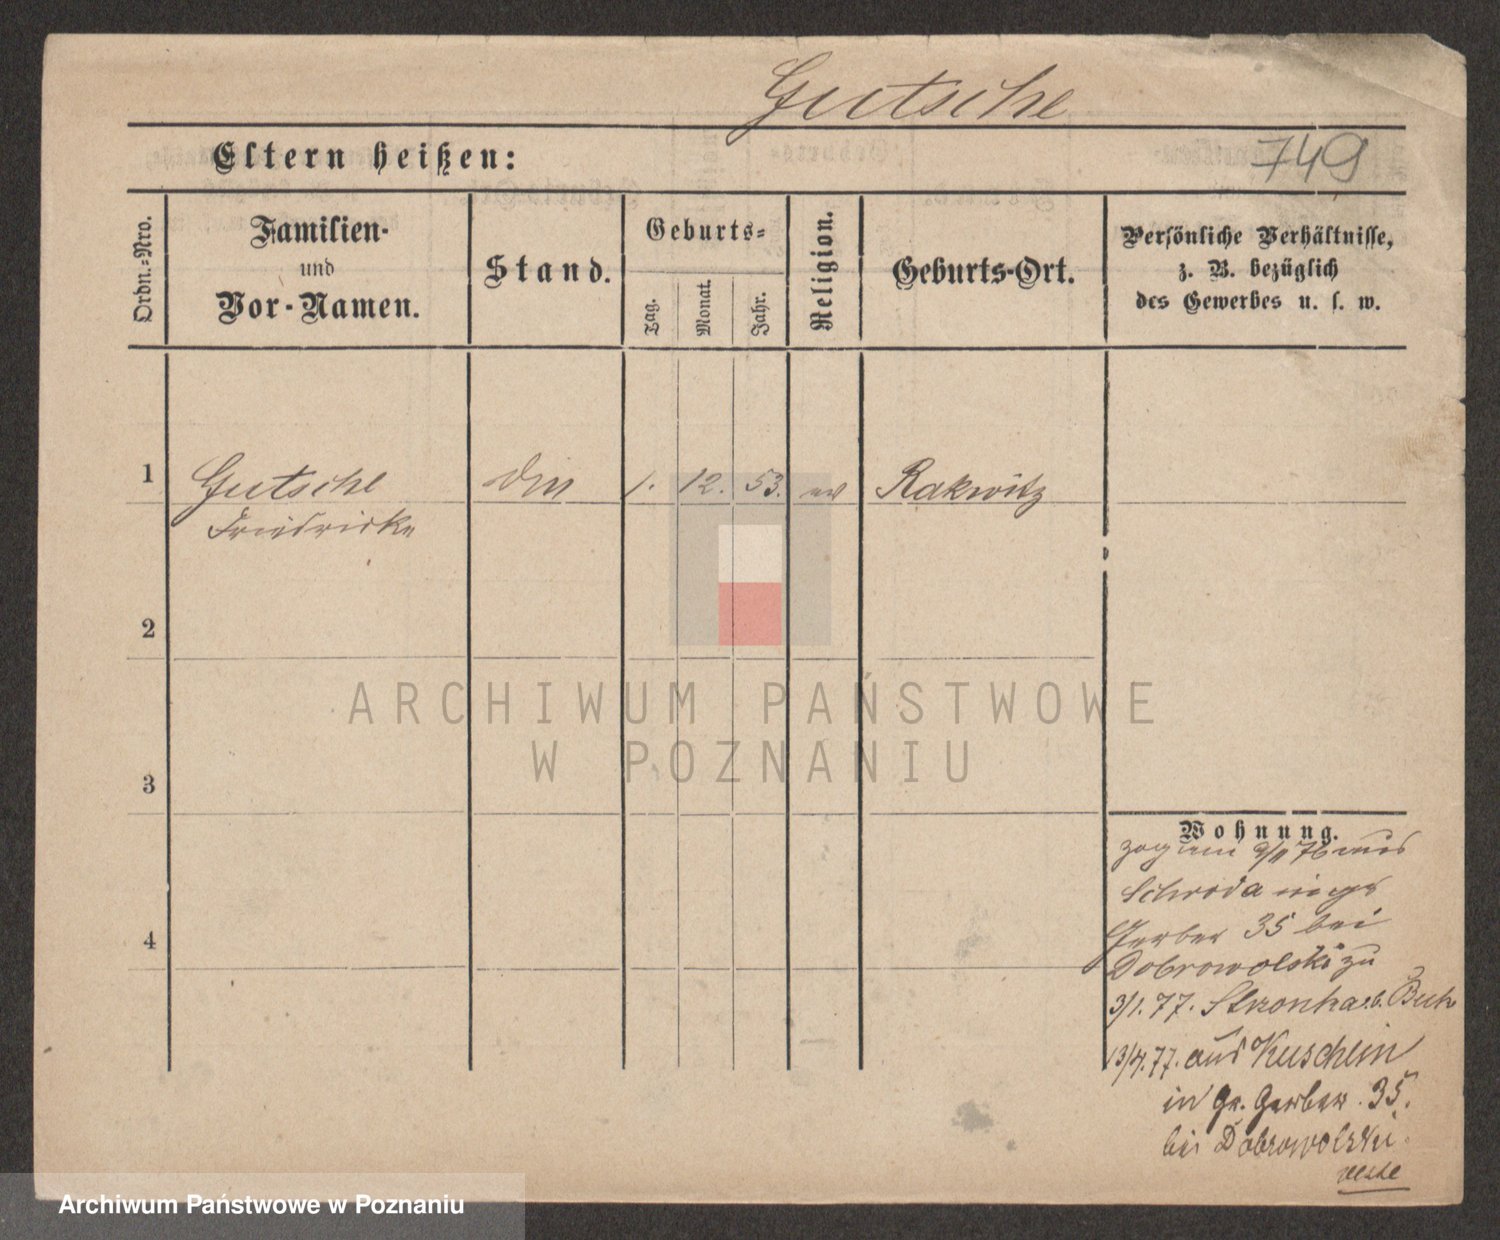 Gutsche
Eltern heißen:
749
Ordn.-Nro.
Familien-
und
Vor-Namen.
Stand.
Geburts-
Tag.
Monat.
Jahr.
Religion.
Geburts-Ort.
Persönliche Verhältnisse,
z. B. bezüglich
des Gewerbes u. s. w.
1
Gutsche
Friedricke
1. 12. 53. ev
Rakwitz
2
3
4
ARCHIWUM PAŃSTWOWE
W POZNANIU
Wohnung.
zog am 9/11 76 aus
Schroda
Gerber 35 bei
Dobrowolski zu
3/1. 77.
13/4. 77. aus Kuschlin
in Gr. Gerber. 35.
bei Dobrowolski.
Archiwum Państwowe w Poznaniu